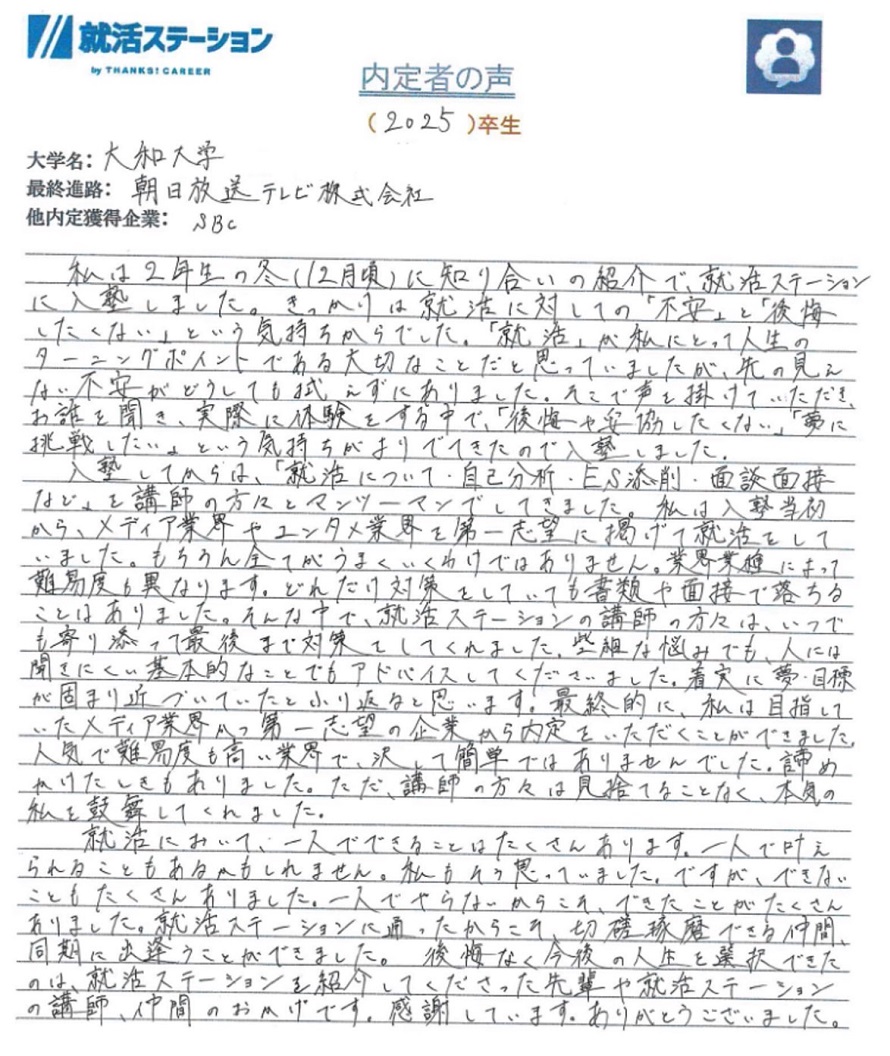 就活ステーション
by THANKS! CAREER
内定者の声
(2025)卒生
大学名: 大和大学
最終進路: 朝日放送テレビ株式会社
他内定獲得企業: SBC
私は2年生の冬(12月頃)に知り合いの紹介で、就活ステーション
に入塾しました。きっかけは就活に対しての「不安」と「後悔
したくない」という気持ちからでした。「就活」が私にとって人生の
ターニングポイントである大切なことだと思っていましたが、先の見え
ない不安がどうしても拭えずにありました。そこで声を掛けていただき、
お話を聞き、実際に体験をする中で、「後悔や妥協したくない」「夢に
挑戦したい」という気持ちがよりでてきたので入塾しました。
入塾してからは、「就活について・自己分析・ES添削・面談面接
など」を講師の方々とマンツーマンでしてきました。私は入塾当初
から、メディア業界やエンタメ業界を第一志望に掲げて就活をして
いました。もちろん全てがうまくいくわけではありません。業界業種によって
難易度も異なります。どれだけ対策をしていても書類や面接で落ちる
ことはありました。そんな中で、就活ステーションの講師の方々は、いつで
も寄り添って最後まで対策をしてくれました。些細な悩みでも、人には
聞きにくい基本的なことでもアドバイスしてくださいました。着実に夢・目標
が固まり近づいていたと振り返ると思います。最終的に、私は目指して
いたメディア業界かつ第一志望の企業から内定をいただくことができました。
人気で難易度も高い業界で、決して簡単ではありませんでした。諦め
かけたときもありました。ただ、講師の方々は見捨てることなく、本気の
私を鼓舞してくれました。
就活において、一人でできることはたくさんあります。一人で叶え
られることもあるかもしれません。私もそう思っていました。ですが、できない
こともたくさんありました。一人でやらないからこそ、できたことがたくさん
ありました。就活ステーションに通ったからこそ、切磋琢磨できる仲間、
同期に出逢うことができました。 後悔なく今後の人生を選択できた
のは、就活ステーションを紹介してくださった先輩や就活ステーション
の講師、仲間のおかげです。感謝しています。ありがとうございました。